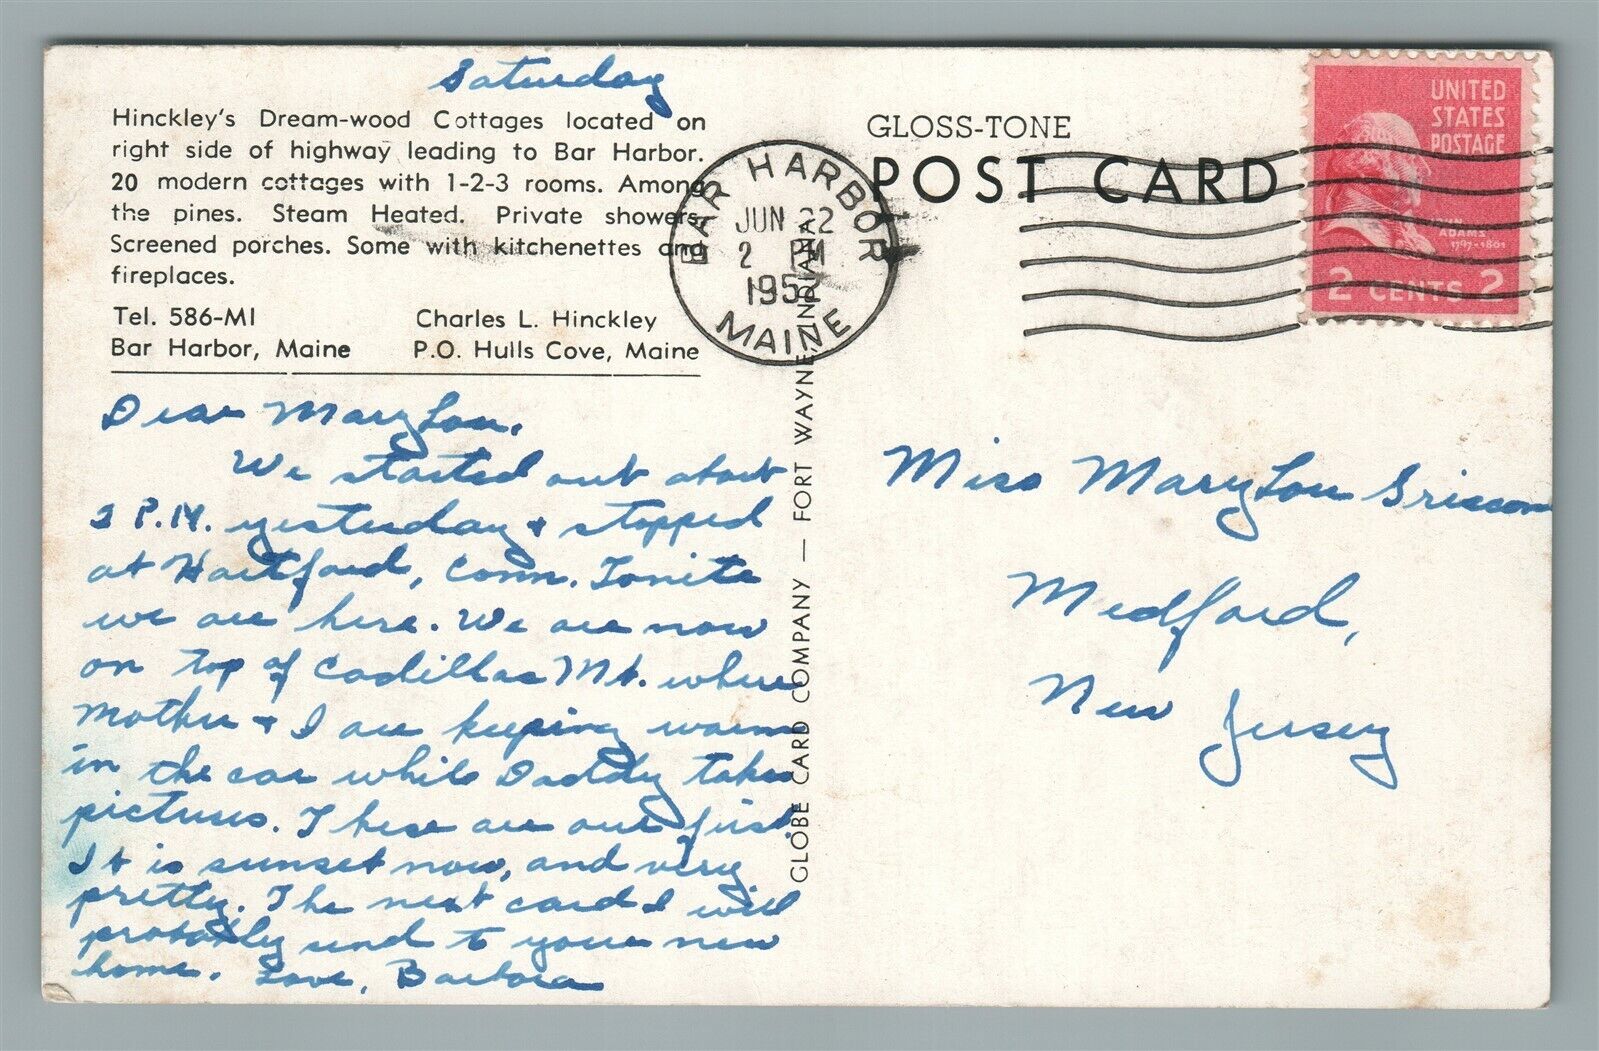 Saturday
Hinckley's Dream-wood Cottages located on
right side of highway leading to Bar Harbor.
20 modern cottages with 1-2-3 rooms. Among
the pines. Steam Heated. Private showers.
Screened porches. Some with kitchenettes and
fireplaces.
Tel. 586-MI Charles L. Hinckley
Bar Harbor, Maine P.O. Hulls Cove, Maine
Dear Mary Lou,
We started out about
2 P.M. yesterday & stopped
at Hartford, Conn. Tonite
we are here. We are now
on top of Cadillac Mt. where
Mother & I are keeping warm
in the car while Daddy takes
pictures. These are our first.
It is sunset now, and very
pretty. The next card I will
probably send to your new
home. Love, Barbara
GLOBE CARD COMPANY — FORT WAYNE, INDIANA
BAR HARBOR
JUN 22
2 PM
1952
MAINE
GLOSS-TONE
POST CARD
UNITED
STATES
POSTAGE
JOHN
ADAMS
1797-1801
2 CENTS 2
Miss Mary Lou Grissom
Medford,
New Jersey